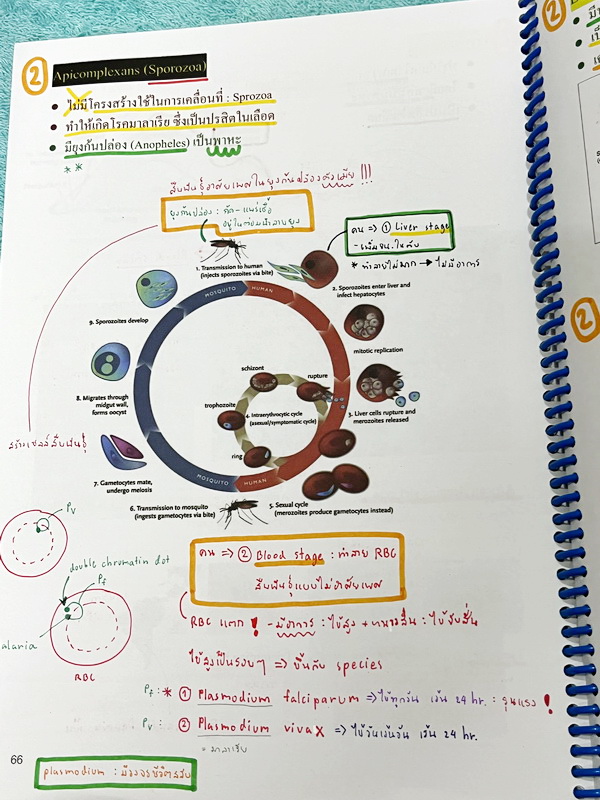 2
2 Apicomplexans (Sporozoa)
• ไม่มีโครงสร้างใช้ในการเคลื่อนที่ : Sprozoa
• ทำให้เกิดโรคมาลาเรีย ซึ่งเป็นปรสิตในเลือด
• มียุงก้นปล่อง (Anopheles) เป็นพาหะ
สืบพันธุ์อาศัยเพศในยุงก้นปล่องตัวเมีย !!!
ยุงก้นปล่อง : กัด - แพร่เชื้อ
อยู่ในต่อมน้ำลายยุง
คน => ① Liver stage
- เพิ่มจน. ในตับ
* ทำลายไม่มาก → ไม่มีอาการ
1. Transmission to human
(injects sporozoites via bite)
2. Sporozoites enter liver and
infect hepatocytes
MOSQUITO HUMAN
9. Sporozoites develop
mitotic replication
schizont
rupture
8. Migrates through
midgut wall,
forms oocyst
trophozoite
4. Intraerythrocytic cycle
(asexual/symptomatic cycle)
3. Liver cells rupture and
merozoites released
2
สร้างเซลล์สืบพันธุ์
ring
7. Gametocytes mate,
undergo meiosis
MOSQUITO HUMAN
6. Transmission to mosquito
(ingests gametocytes via bite)
5. Sexual cycle
(merozoites produce gametocytes instead)
Pv
คน => ② Blood stage : ทำลาย RBC
สืบพันธุ์แบบไม่อาศัยเพศ
double chromatin dot
Pf
alaria
RBC
RBC แตก ! - มีอาการ : ไข้สูง + หนาวสั่น : ไข้จับสั่น
ไข้สูงเป็นรอบๆ => ขึ้นกับ species
Pf : * ① Plasmodium falciparum => ไข้ทุกวัน เว้น 24 hr. : รุนแรง !
Pv : ② Plasmodium vivax => ไข้วันเว้นวัน เว้น 24 hr.
* มาลาเรีย
66
plasmodium : มีวงจรชีวิตสลับ